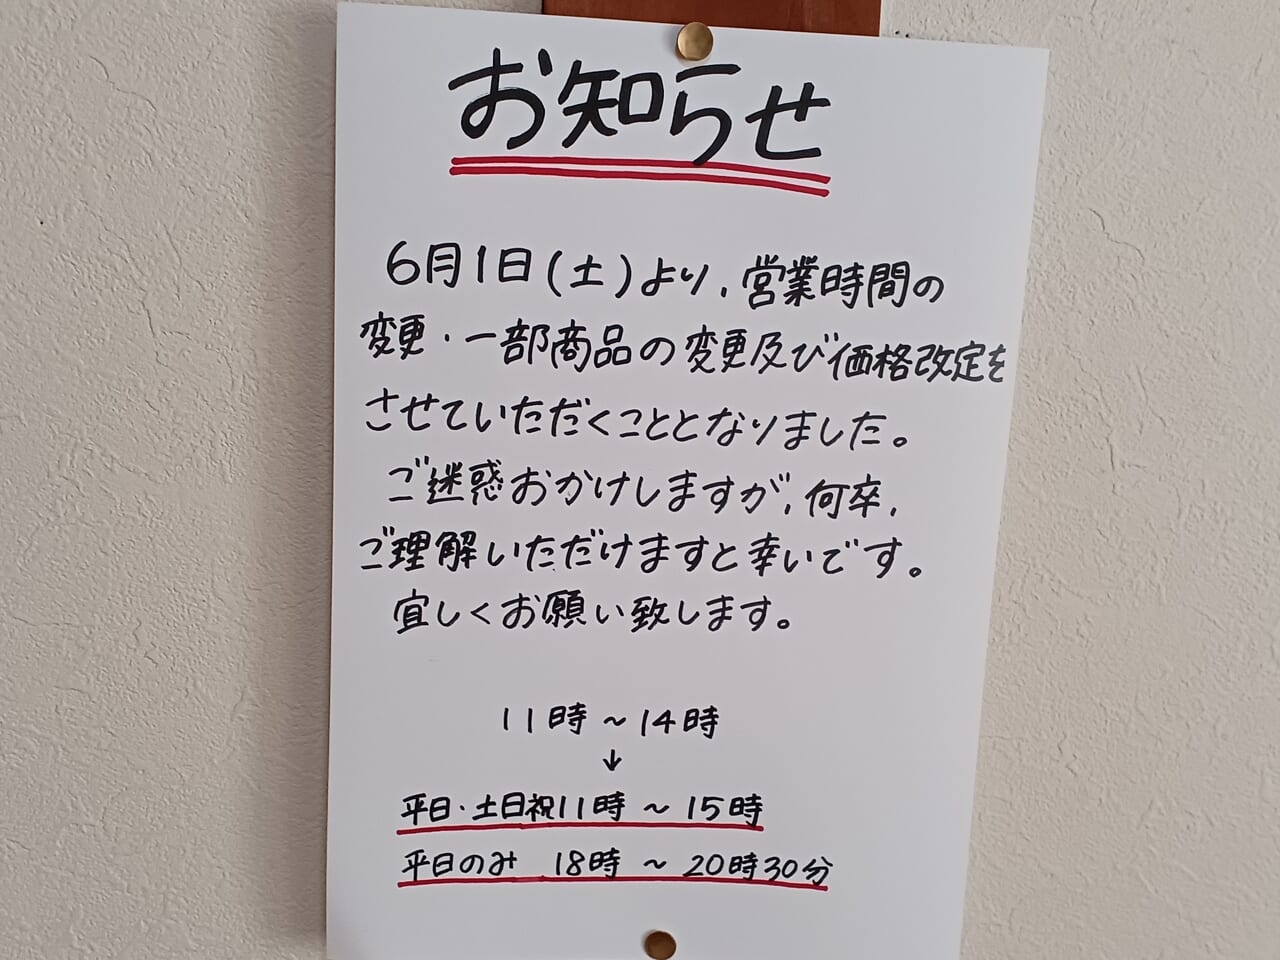 お知らせ
6月1日(土)より、営業時間の
変更・一部商品の変更及び価格改定を
させていただくこととなりました。
ご迷惑おかけしますが、何卒、
ご理解いただけますと幸いです。
宜しくお願い致します。
11時～14時
↓
平日・土日祝11時～15時
平日のみ 18時～20時30分